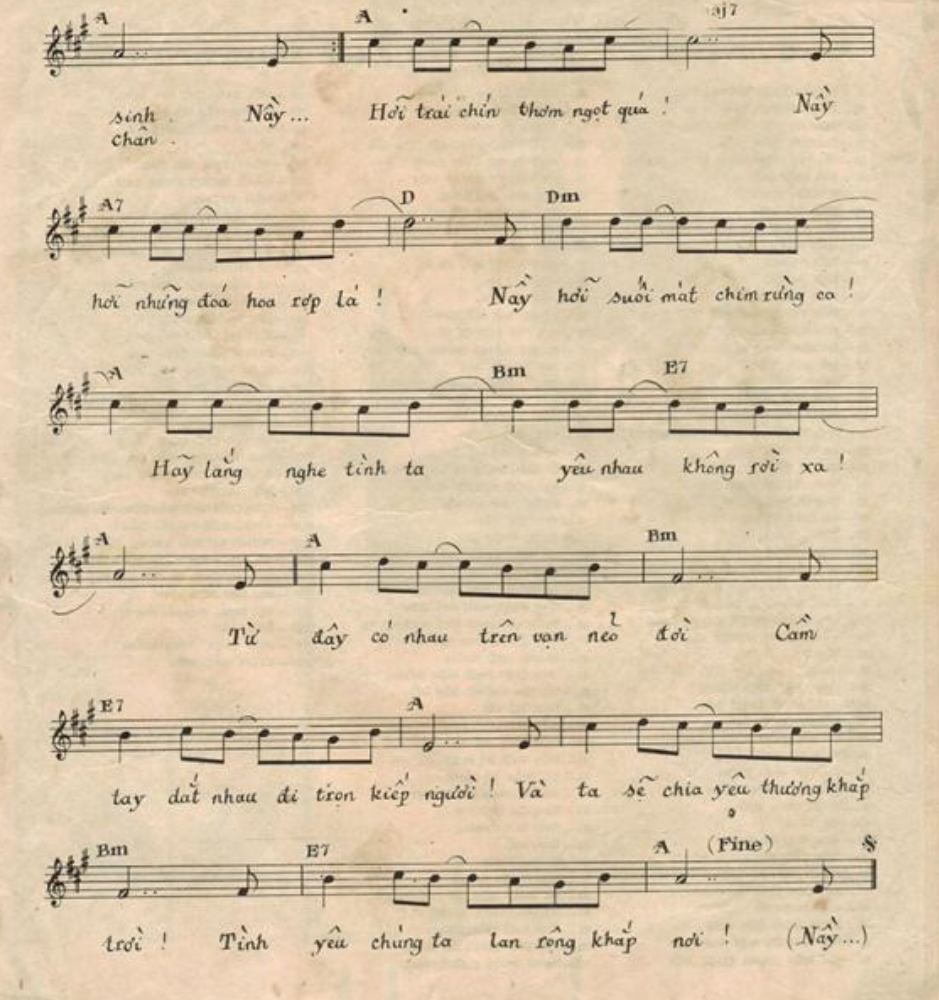 A A aj7
sinh . Nầy... Hỡi trái chín thơm ngọt quá ! Nầy
chân .
A7 D Dm
hỡi những đoá hoa rợp lá ! Nầy hỡi suối mát chim rừng ca !
A Bm E7
Hãy lắng nghe tình ta yêu nhau không rời xa !
A A Bm
Từ đây có nhau trên vạn nẻo đời Cầm
E7 A
tay dắt nhau đi trọn kiếp người ! Và ta sẽ chia yêu thương khắp
Bm E7 A (Fine) 𝄋
trời ! Tình yêu chúng ta lan rộng khắp nơi ! (Nầy...)